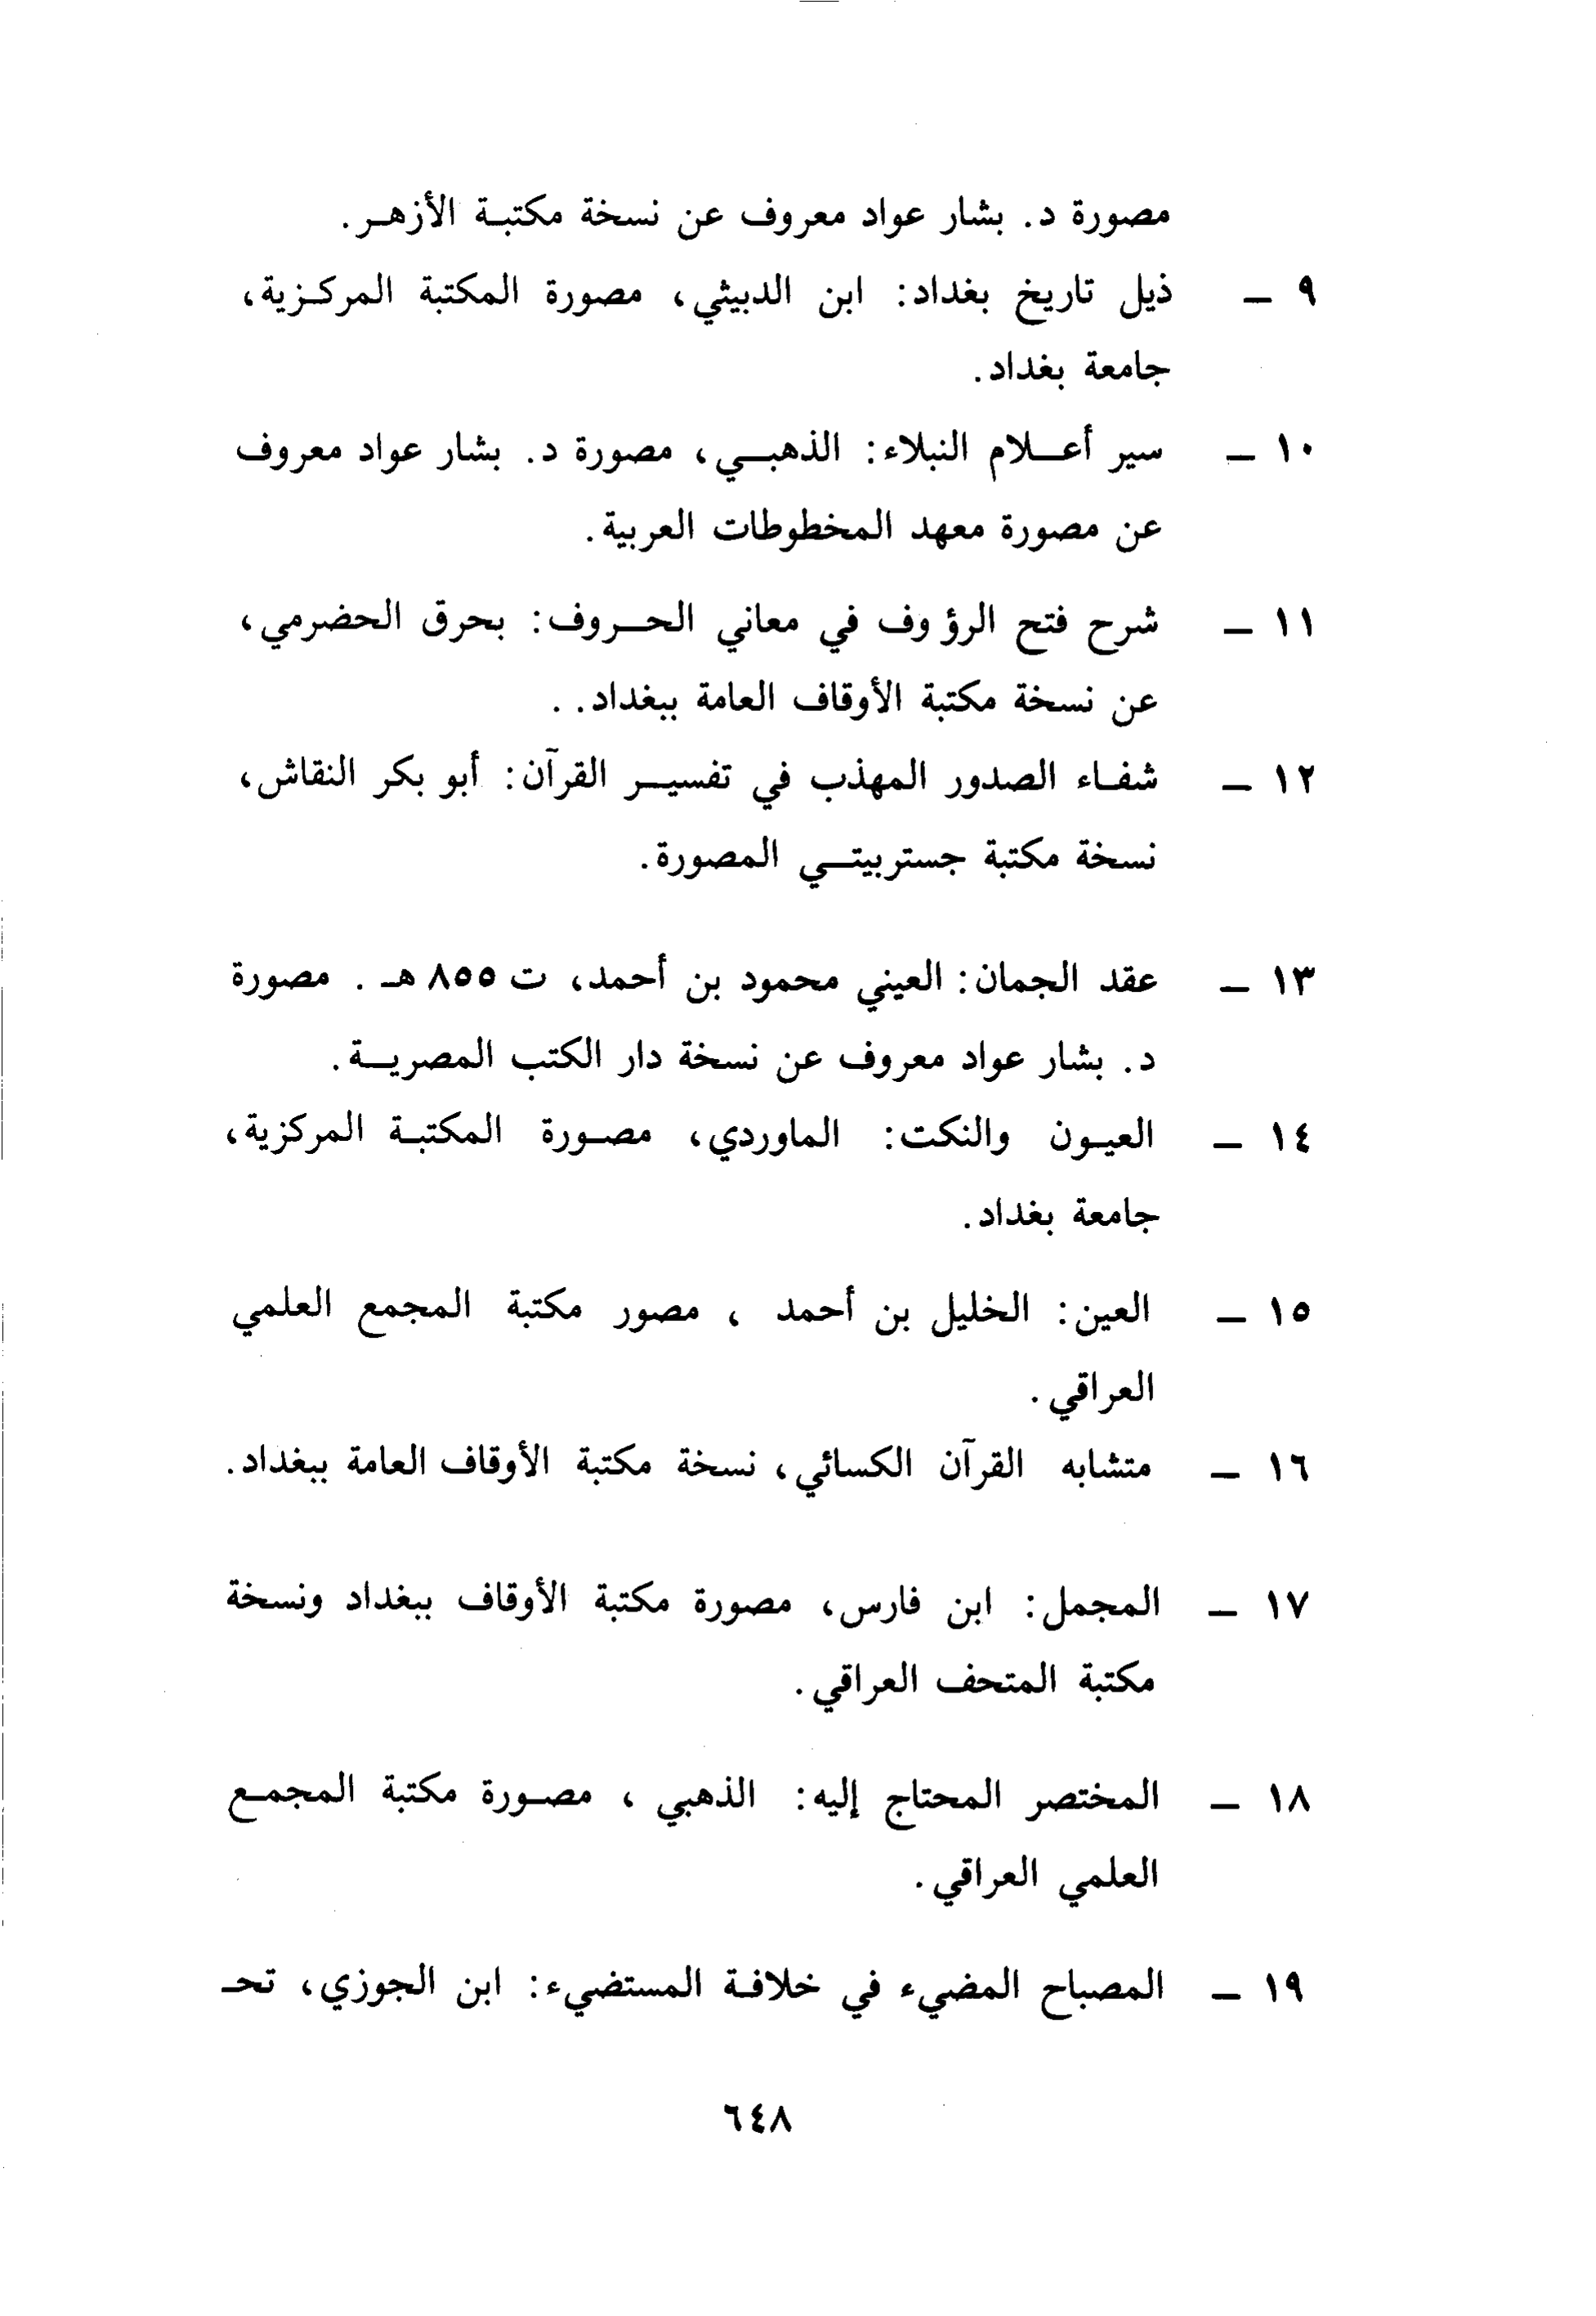 مصورة د. بشار عواد معروف عن نسخة مكتبة الأزهر.
٩ – ذيل تاريخ بغداد: ابن الدبيثي، مصورة المكتبة المركزية،
جامعة بغداد.
١٠ – سير أعلام النبلاء: الذهبي، مصورة د. بشار عواد معروف
عن مصورة معهد المخطوطات العربية.
١١ – شرح فتح الرؤوف في معاني الحروف: بحرق الحضرمي،
عن نسخة مكتبة الأوقاف العامة ببغداد..
١٢ – شفاء الصدور المهذب في تفسير القرآن: أبو بكر النقاش،
نسخة مكتبة جستربيتي المصورة.
١٣ – عقد الجمان: العيني محمود بن أحمد، ت ٨٥٥ هـ. مصورة
د. بشار عواد معروف عن نسخة دار الكتب المصرية.
١٤ – العيون والنكت: الماوردي، مصورة المكتبة المركزية،
جامعة بغداد.
١٥ – العين: الخليل بن أحمد، مصور مكتبة المجمع العلمي
العراقي.
١٦ – متشابه القرآن الكسائي، نسخة مكتبة الأوقاف العامة ببغداد.
١٧ – المجمل: ابن فارس، مصورة مكتبة الأوقاف ببغداد ونسخة
مكتبة المتحف العراقي.
١٨ – المختصر المحتاج إليه: الذهبي، مصورة مكتبة المجمع
العلمي العراقي.
١٩ – المصباح المضيء في خلافة المستضيء: ابن الجوزي، تحـ
٦٤٨